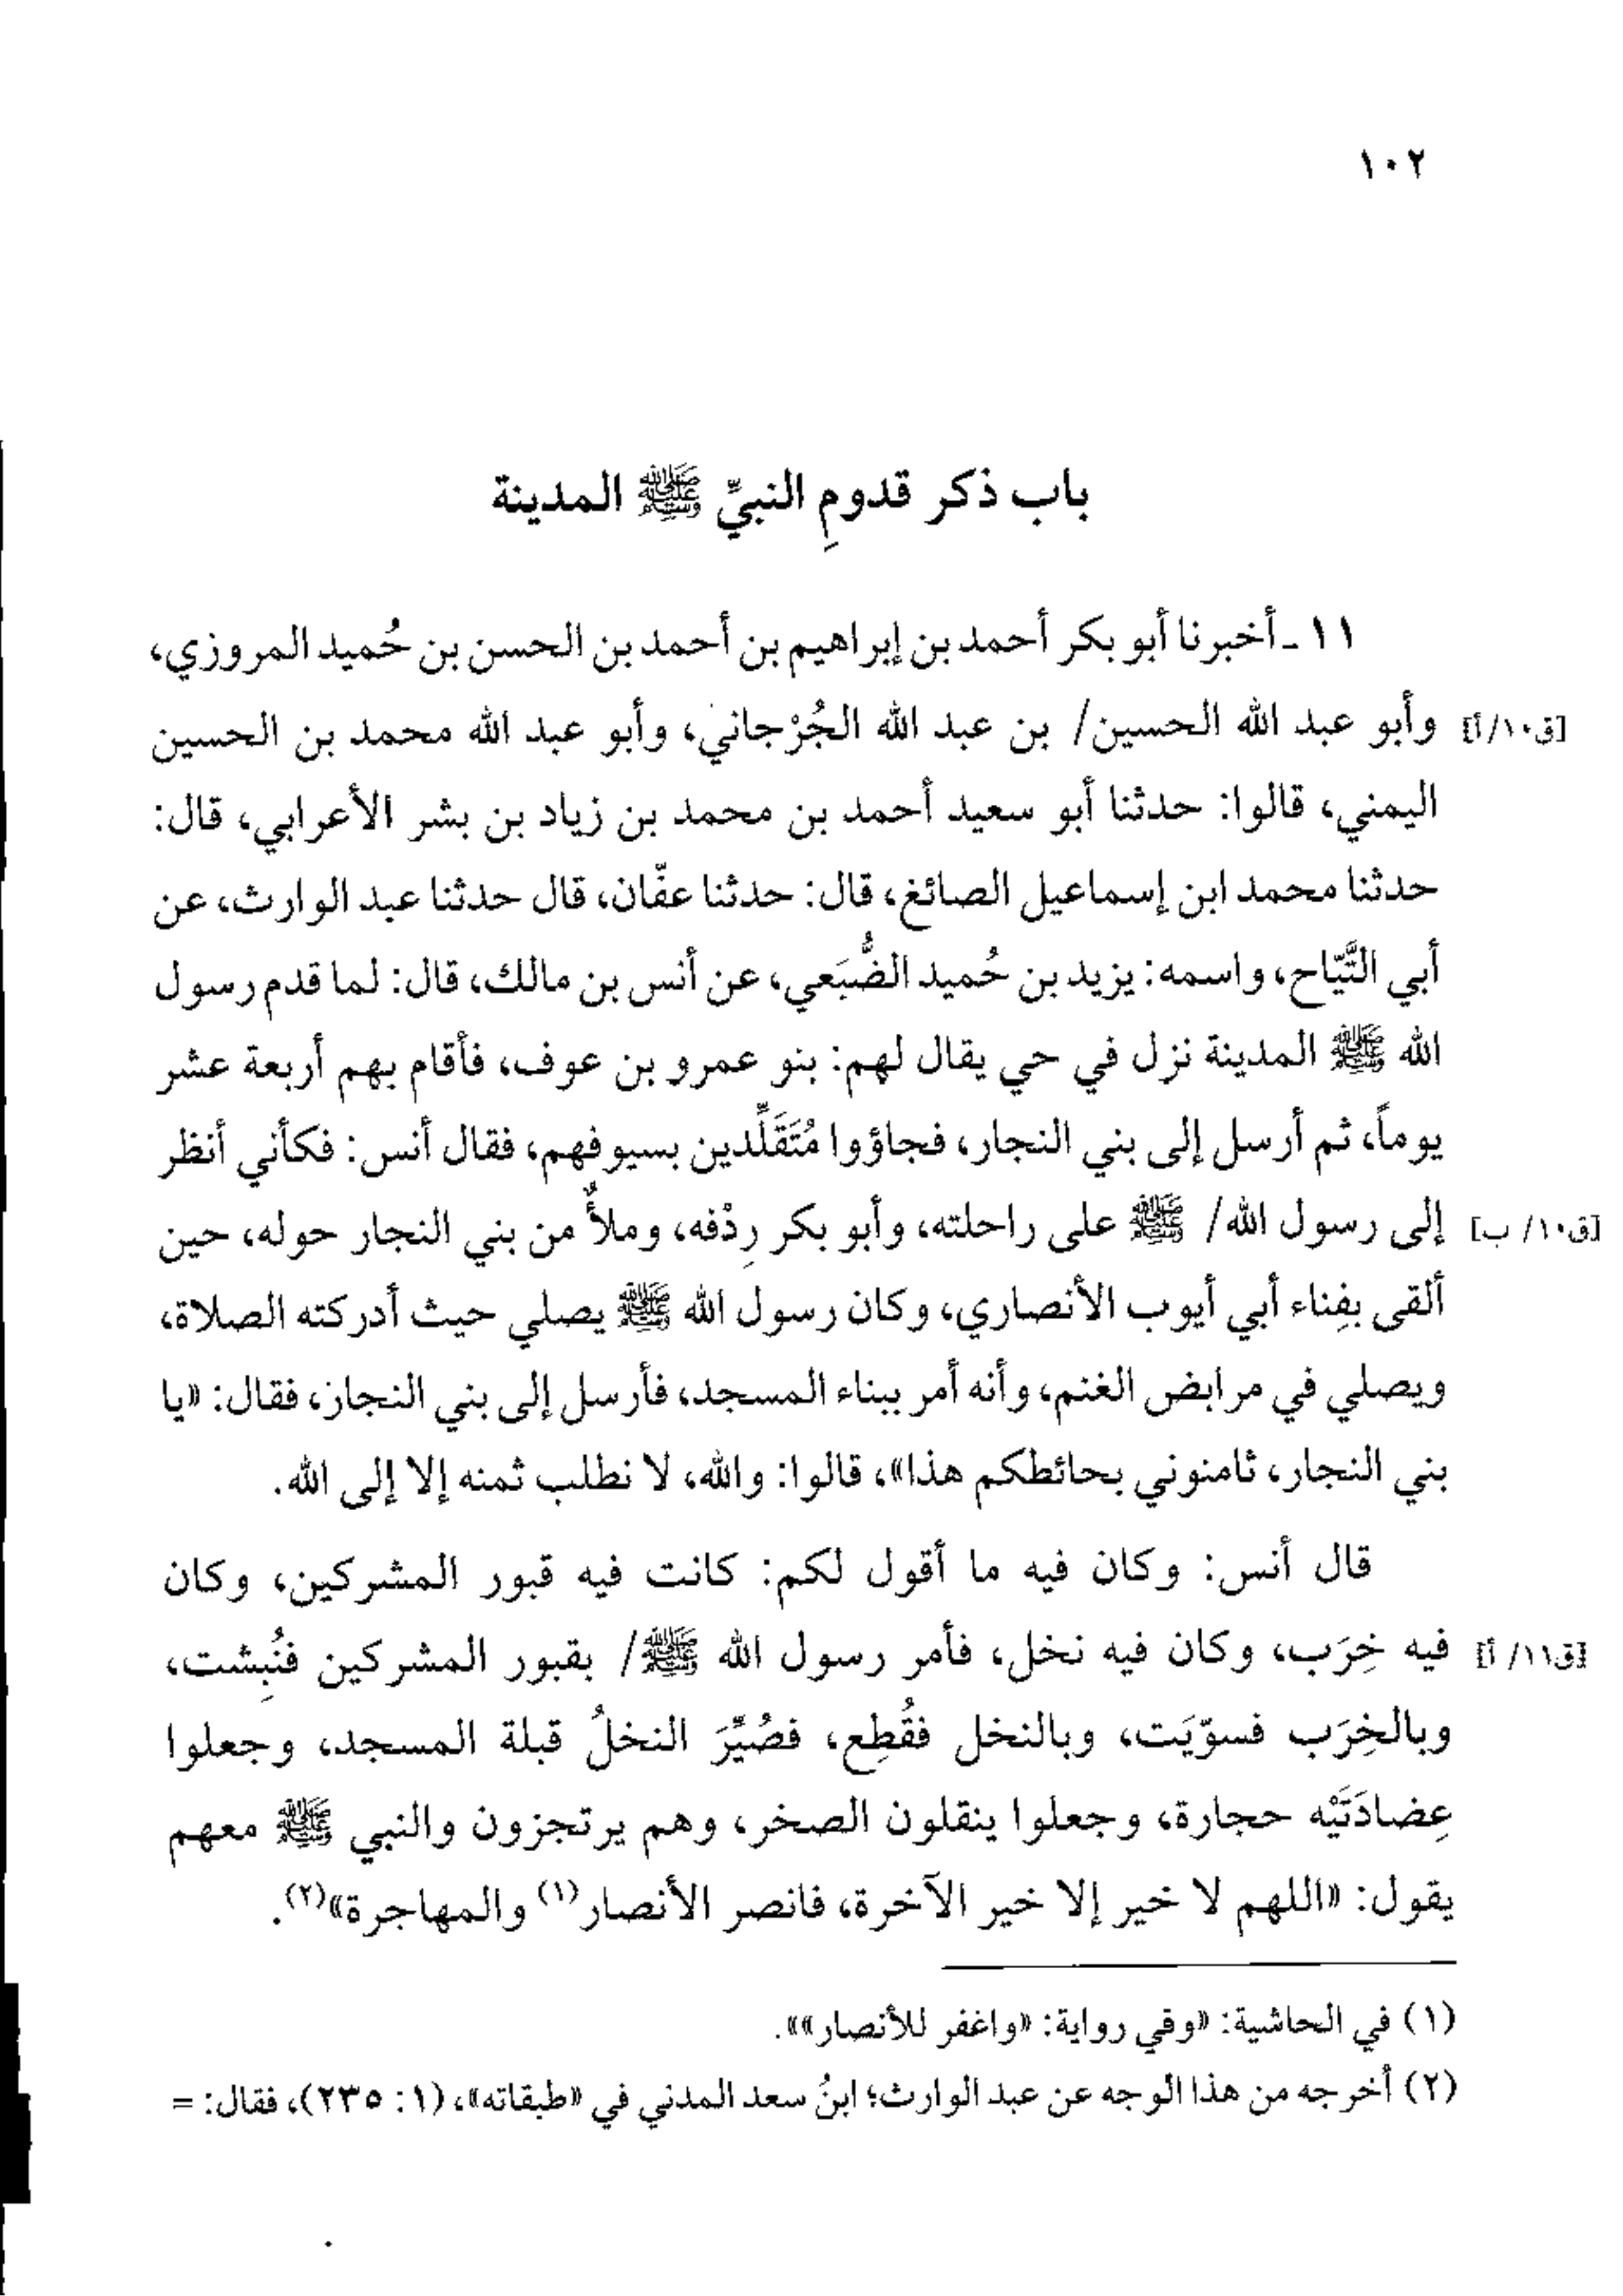 ١٠٢
باب ذكر قدومِ النبيِّ ﷺ المدينة
١١ ـ أخبرنا أبو بكر أحمد بن إبراهيم بن أحمد بن الحسن بن حُميد المروزي،
[ق١٠/أ] وأبو عبد الله الحسين/ بن عبد الله الجُرْجاني، وأبو عبد الله محمد بن الحسين
اليمني، قالوا: حدثنا أبو سعيد أحمد بن محمد بن زياد بن بشر الأعرابي، قال:
حدثنا محمد ابن إسماعيل الصائغ، قال: حدثنا عفّان، قال حدثنا عبد الوارث، عن
أبي التَّيّاح، واسمه: يزيد بن حُميد الضُّبَعي، عن أنس بن مالك، قال: لما قدم رسول
الله ﷺ المدينة نزل في حي يقال لهم: بنو عمرو بن عوف، فأقام بهم أربعة عشر
يوماً، ثم أرسل إلى بني النجار، فجاؤوا مُتَقَلِّدين بسيوفهم، فقال أنس: فكأني أنظر
[ق١٠/ ب] إلى رسول الله/ ﷺ على راحلته، وأبو بكر رِدْفه، وملأٌ من بني النجار حوله، حين
ألقى بفِناء أبي أيوب الأنصاري، وكان رسول الله ﷺ يصلي حيث أدركته الصلاة،
ويصلي في مرابض الغنم، وأنه أمر ببناء المسجد، فأرسل إلى بني النجار، فقال: «يا
بني النجار، ثامنوني بحائطكم هذا»، قالوا: والله، لا نطلب ثمنه إلا إلى الله.
قال أنس: وكان فيه ما أقول لكم: كانت فيه قبور المشركين، وكان
[ق١١/ أ] فيه خِرَب، وكان فيه نخل، فأمر رسول الله ﷺ/ بقبور المشركين فنُبِشت،
وبالخِرَب فسوّيَت، وبالنخل فقُطِع، فصُيِّرَ النخلُ قبلة المسجد، وجعلوا
عِضادَتَيْه حجارة، وجعلوا ينقلون الصخر، وهم يرتجزون والنبي ﷺ معهم
يقول: «اللهم لا خير إلا خير الآخرة، فانصر الأنصار(١) والمهاجرة»(٢).
(١) في الحاشية: «وفي رواية: «واغفر للأنصار»».
(٢) أخرجه من هذا الوجه عن عبد الوارث؛ ابنُ سعد المدني في «طبقاته»، (١: ٢٣٥)، فقال: =